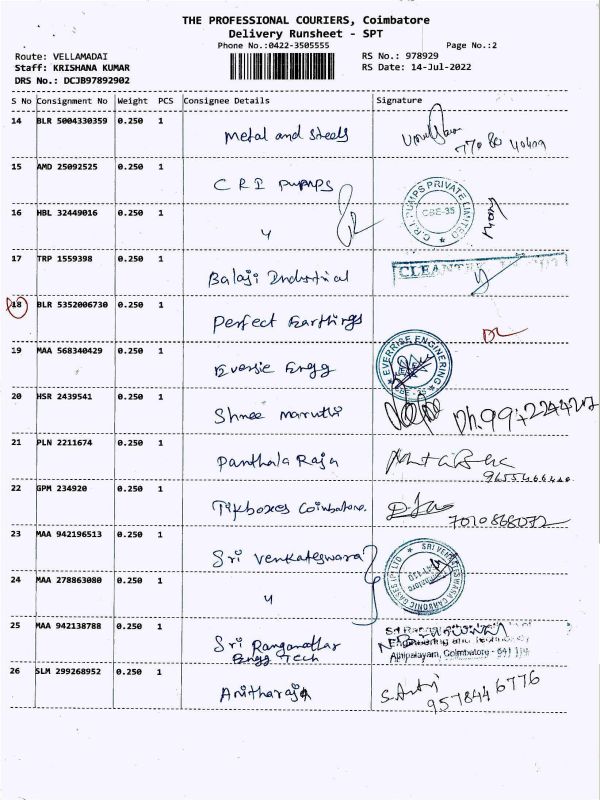 THE PROFESSIONAL COURIERS, Coimbatore
Delivery Runsheet - SPT
Phone No.:0422-3505555
Page No.:2
Route: VELLAMADAI
RS No.: 978929
Staff: KRISHANA KUMAR
RS Date: 14-Jul-2022
DRS No.: DCJB97892902
S No Consignment No Weight PCS Consignee Details Signature
14 BLR 5004330359 0.250 1 Metal and Steels
15 AMD 25092525 0.250 1 C R I pumps
C.R.I. PUMPS PRIVATE LIMITED
CBE-35
16 HBL 32449016 0.250 1 "
17 TRP 1559398 0.250 1 Balaji Industrial
18 BLR 5352006730 0.250 1 Perfect Earthings
19 MAA 568340429 0.250 1 Everise Engg
EVERRISE ENGINERING
20 HSR 2439541 0.250 1 Shree maruthi
21 PLN 2211674 0.250 1 Panthala Raja
22 GPM 234920 0.250 1 Tikboxes Coimbatore.
7010868072
23 MAA 942196513 0.250 1 Sri Venkateswara
SRI VENKATESWARA CARBONIC GASES (P) LTD
24 MAA 278863080 0.250 1 "
25 MAA 942138788 0.250 1 Sri Ranganathar
Engg Tech
Engineering and Technology
Athipalayam, Coimbatore - 641 110
26 SLM 299268952 0.250 1 Anitharaja
9578446776